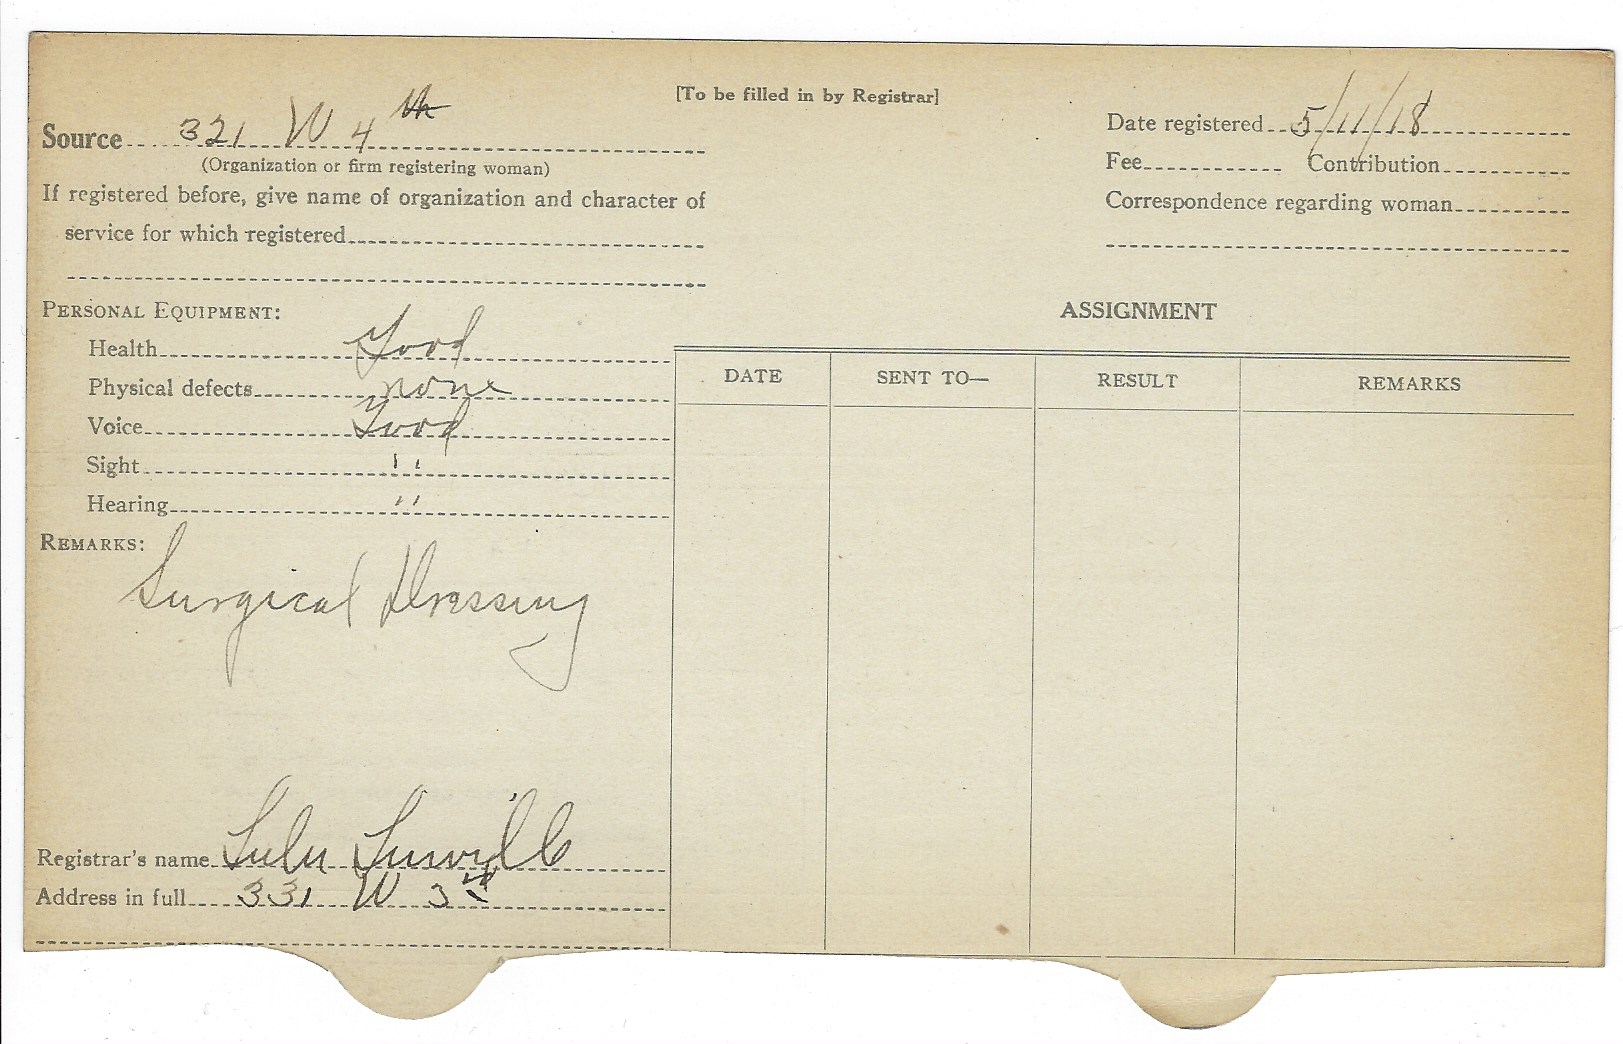 [To be filled in by Registrar]
Source 321 W 4th
(Organization or firm registering woman)
If registered before, give name of organization and character of
service for which registered
Date registered 5/11/18
Fee Contribution
Correspondence regarding woman
PERSONAL EQUIPMENT:
Health Good
Physical defects none
Voice Good
Sight "
Hearing "
REMARKS:
Surgical Dressing
Registrar's name Lulu
Address in full 331 W 3rd
ASSIGNMENT
DATE SENT TO— RESULT REMARKS